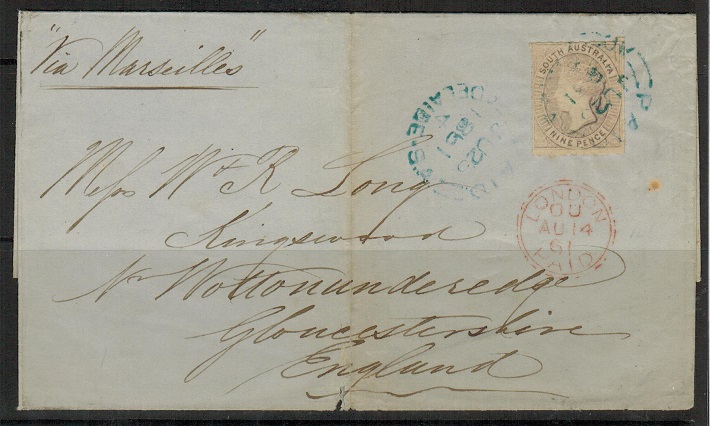 "Via Marseilles"
SOUTH AUSTRALIA
NINE PENCE
ADELAIDE S.A
1861
LONDON
OU
AU 14
61
PAID
Messrs W & R Long
Kingswood
Nr Wottonunderedge
Gloucestershire
England